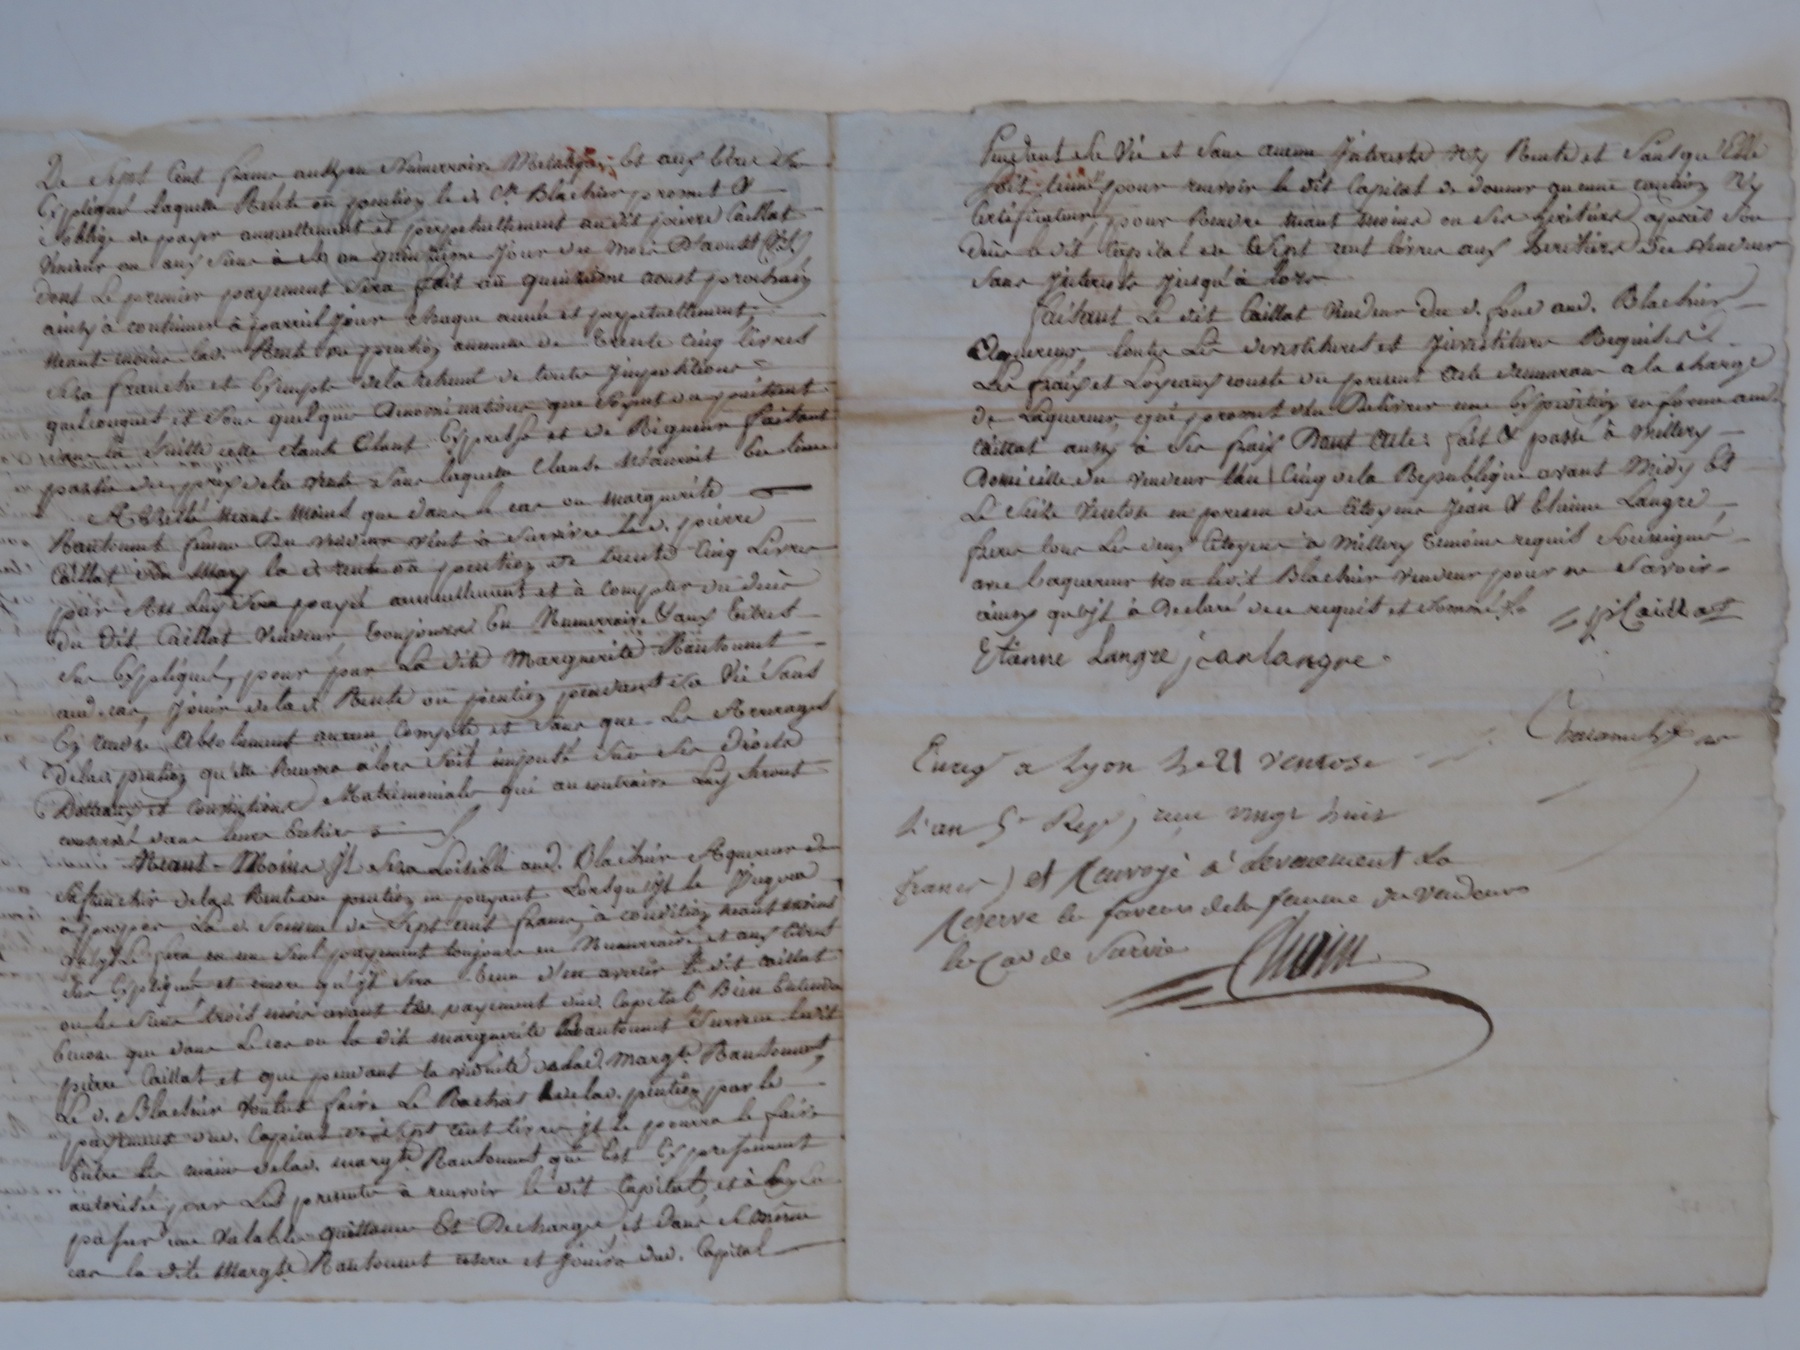 De Sept Cent francs aussy en Numerraire Metalique et aux titres Sus
Expliqué Laquelle Rente ou pention le d. Cn. Blachier promet &
s'oblige de payer annuellement et perpetuellement au dit pierre Caillat
Vendeur ou aux Siens à un quinzieme Jour du Mois D'aoust
dont Le premier payement Sera fait au quinzieme aoust prochain
ainsy à continuer à pareil Jour chaque année et perpetuellement,
Neant-moins lad. Rente ou pention annuelle de Trente Cinq livres
Sera franche et Exempte de la retenue de toutes Impositions
quelconques et Sous quelque denominations que Soyent
dans la Suitte cette étant Clause Expresse et de Rigueur faisant
partie du prix de la vente Sans laquelle Clause
Arreté neant-moins que dans le cas ou marguerite
Rantonnet femme Du vendeur vint à Survivre led. pierre
Caillat Son Mary la d. rente ou pention de trente Cinq Livres
par An Luy Sera payé annuellement et à compter du decès
du Dit Caillat Vendeur Toujours En Numerraire & aux titres
Sus Expliqué, pour par La dite Marguerite Rantonnet
aud. cas, Jouir de la d. Rente ou pention pendant Sa Vie Sans
En rendre absolument aucun Compte et Sans que Les Arrerages
De lad. pention qu'elle Recevra alors Soit imputé Sur Ses Droits
Dottaux et conventions Matrimoniales qui au contraire Luy Seront
conservé dans leurs Entiers
Neant-Moins Il Sera Loisible aud. Blachier Aquereur de
Saffranchir de lad. Rente ou pention en payant Lorsqu'Il le Jugera
à propos La d. Somme de Sept cent francs, à condition neant moins
qu'il le fera en un Seul payement toujours en Numerraire et aux titres
Sus Expliqué et encore qu'il Sera Tenu d'en avertir le dit caillat
ou les Siens trois mois avant le payement dud. Capital Bien Entendu
Encore que dans Le cas ou la dite marguerite Rantonnet Survecu ledit
pierre Caillat et que pendant la viduité de lad. Margte. Rantonnet,
Le d. Blachier Voulut faire Le Rachat de lad. pention par le
payement dud. Capital de Sept cent livres Il le pourra le faire
Entre les mains de lad. margte Rantonnet qui Est Expressement
autorisée par Les presentes à recevoir le dit Capital, et à en
passer une Valable quittance Et Décharge, et dans le même
cas la dite Margte. Rantonnet et Jouira dud. Capital
pendant Sa Vie et Sans aucun Interests Ny Rente et Sans qu'Elle
Soit tenue pour recevoir le dit Capital de donner aucune caution Ny
Certificateur, pour Rendre neant moins ou Ses heritiers après Son
Decès le dit Capital de Sept cent livres aux heritiers Du Vendeur
Sans Interests Jusqu'à Lors
faisant Le dit Caillat Vendeur du d. fond aud. Blachier
Aquereur, toutes Les devestitures et Investitures Requises.
Les fraix et Loyeaux cousts du present acte demeurans a la charge
de Laquereur, qui promet d'en Délivrer une Expedition en forme aud.
Caillat aussy à Ses fraix Dont acte: fait & passé à Millery
Domicille du vendeur Lan Cinq de la Republique avant Midy Et
Le Seize Ventose en presence des Citoyens Jean & Etienne Langre
freres tous Les deux Citoyens à Millery Témoins requis Soussignés
avec Laquereur non ledit Blachier vendeur pour ne Savoir
ainsy qu'Il à Declaré de ce requis et Sommé. pCaillat
Etiénne Langre jean langre

Enregé a Lyon Le 21 ventose
L'an 5e Rep, reçu vingt huit
francs) et Renvoyé à l'evenement La
Reserve en faveur de la femme du Vendeur
en Cas de Survie